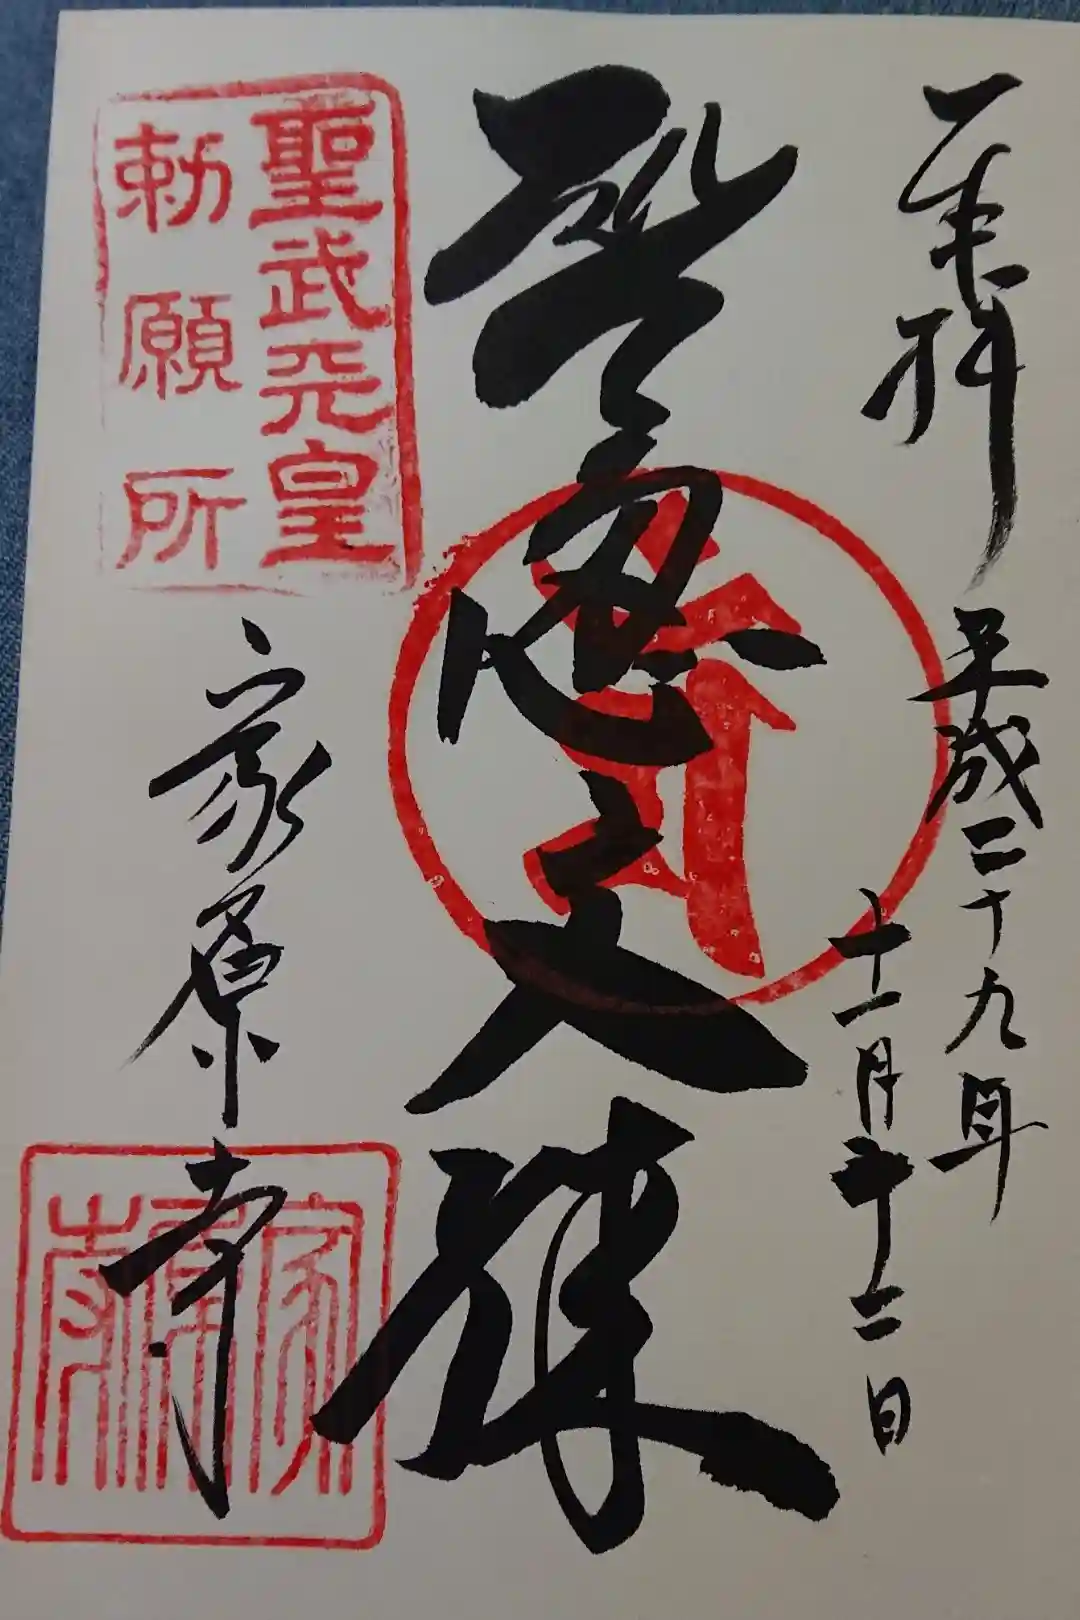 奉拝
平成二十九年
十一月十二日
智恵文殊
聖武天皇
勅願所
家原寺
家原寺